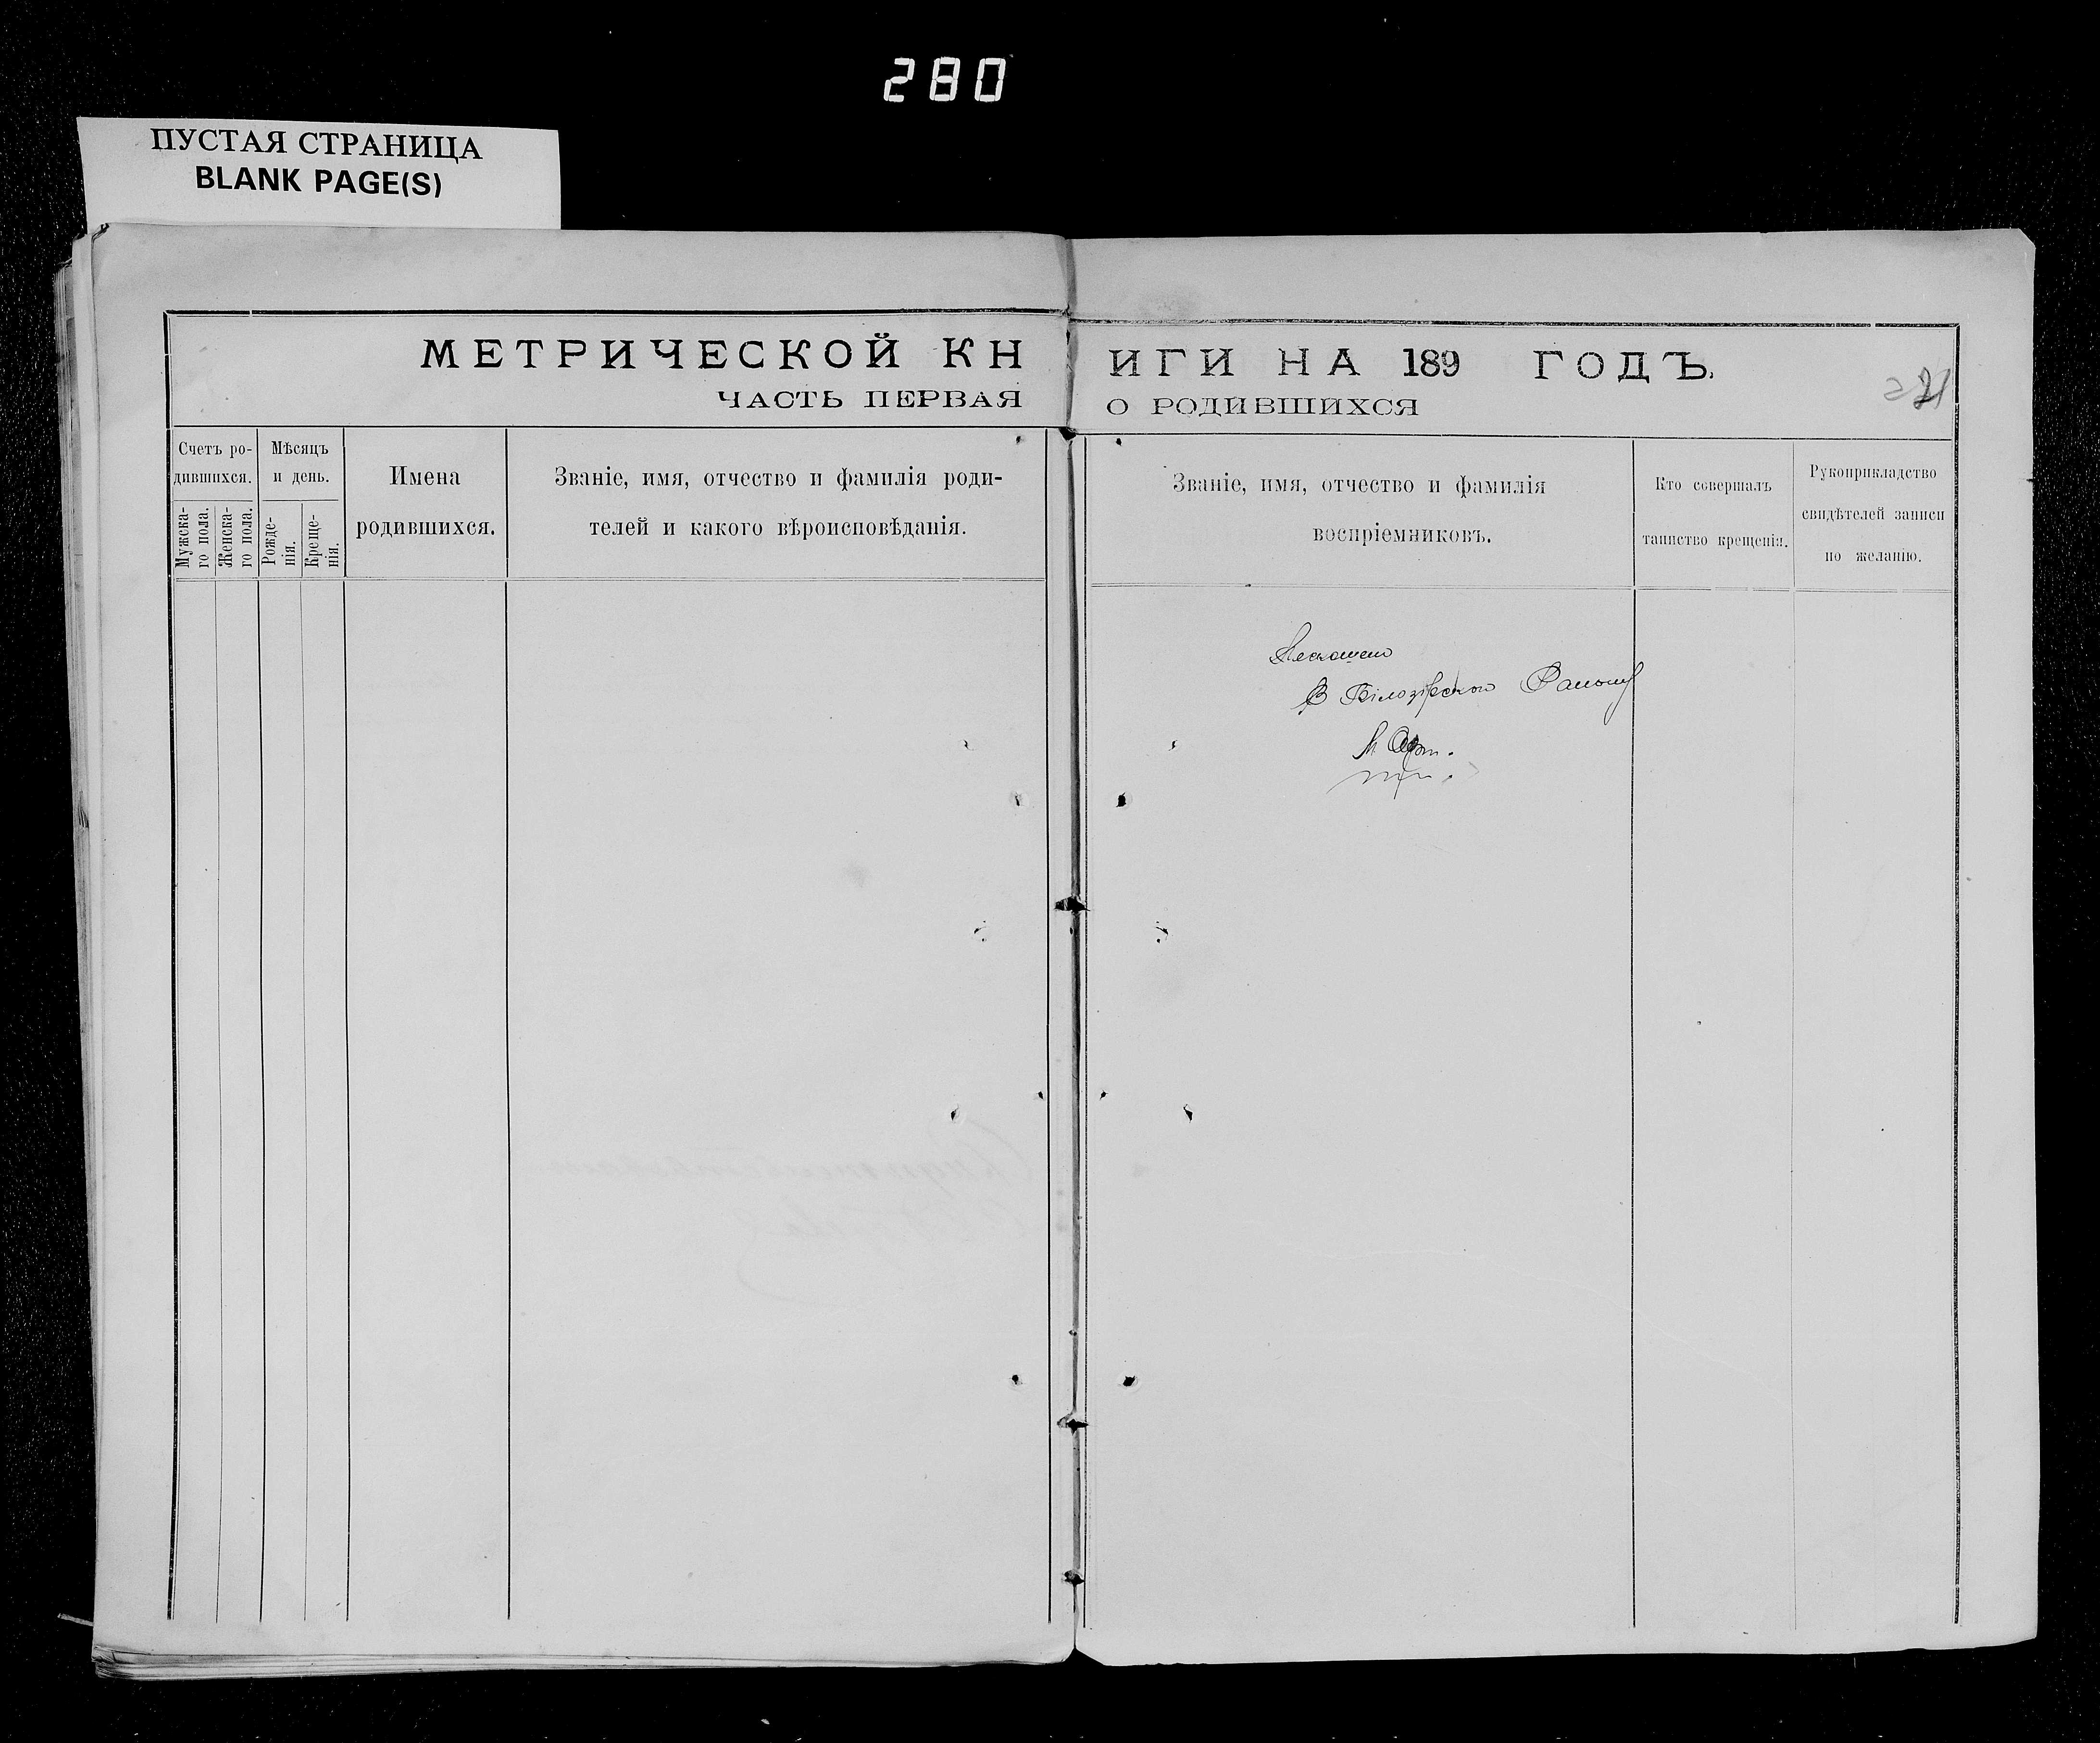 280
ПУСТАЯ СТРАНИЦА
BLANK PAGE(S)
МЕТРИЧЕСКОЙ КНИГИ НА 189 ГОДЪ.
ЧАСТЬ ПЕРВАЯ О РОДИВШИХСЯ
Счетъ ро-
дившихся.
Мужска-
го пола.
Женска-
го пола.
Мѣсяцъ
и день.
Рожде-
нія.
Креще-
нія.
Имена
родившихся.
Званіе, имя, отчество и фамилія роди-
телей и какого вѣроисповѣданія.
Званіе, имя, отчество и фамилія
воспріемниковъ.
Кто совершалъ
таинство крещенія.
Рукоприкладство
свидѣтелей записи
по желанію.
В Білозірською